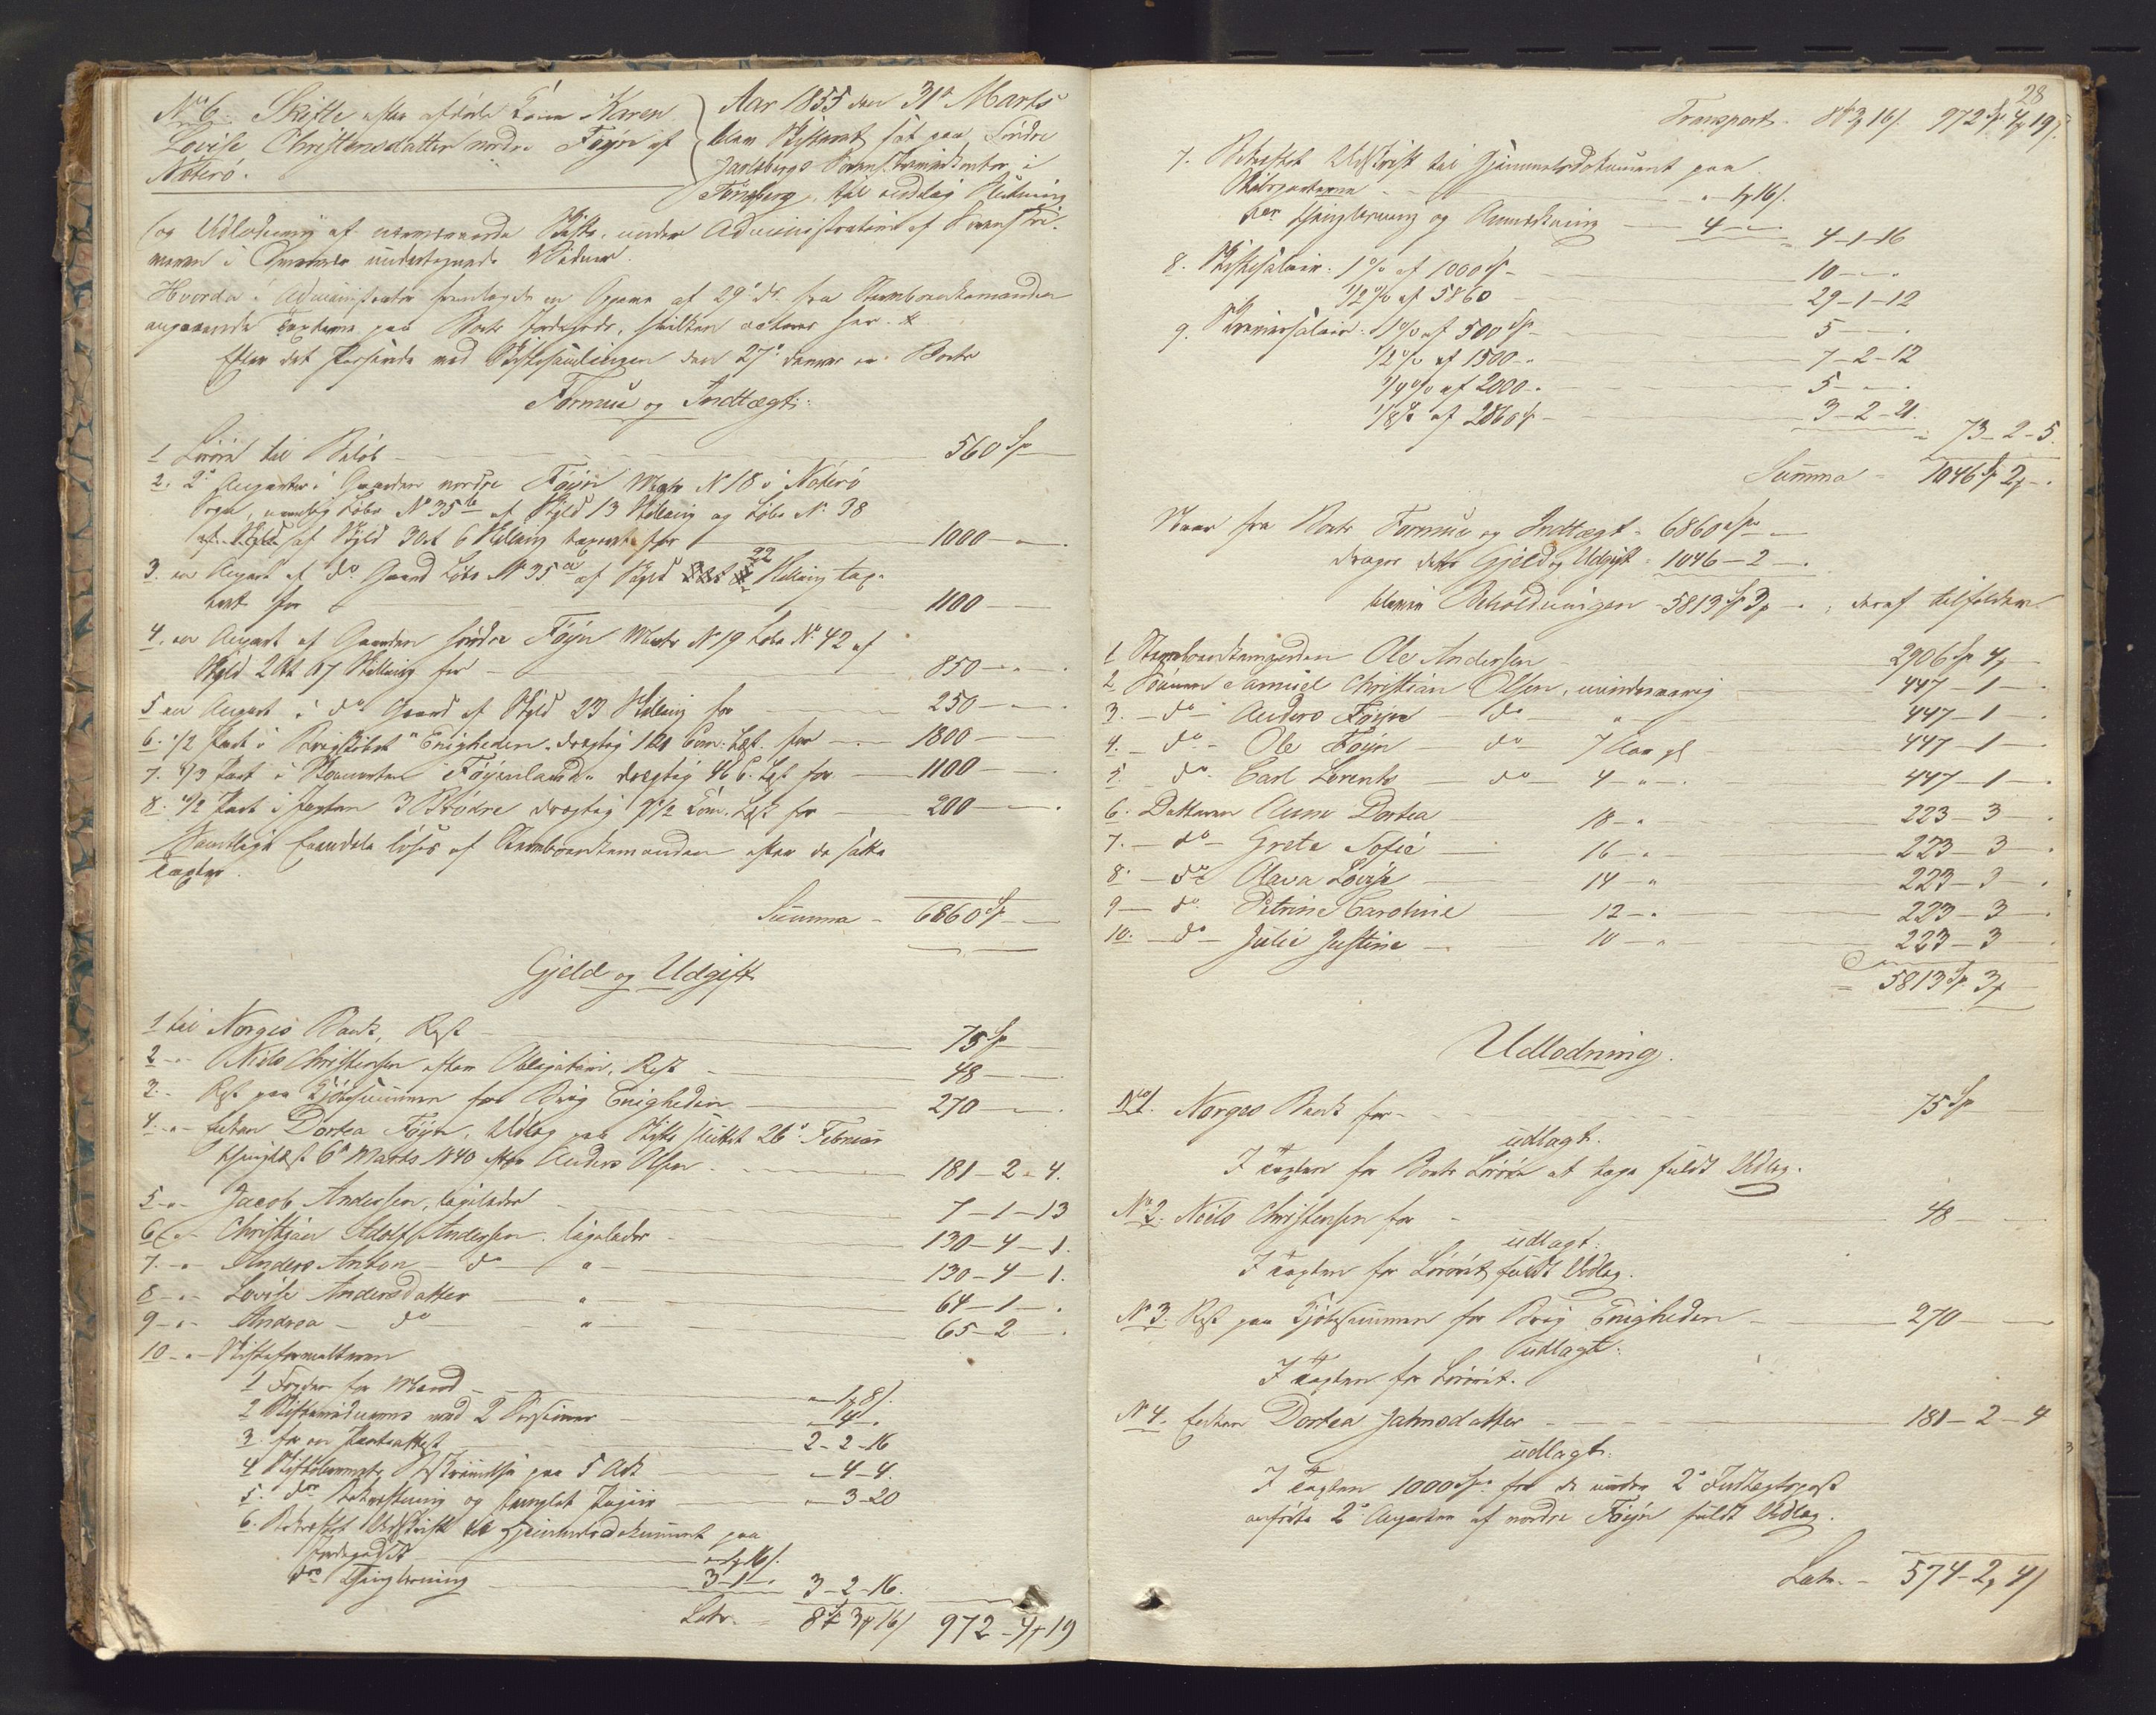 No 6. Skifte efter afdøde Kone Karen
Lovise Christensdatter nordre Føÿn af
Nøterö.
Aar 1855 den 31te Marts
blev Skifteret sat paa Søndre
Jarlsbergs Sorenskriverkontor i
Tønsberg, til endelig Slutning
og Udlodning af nævnte Skifte under Administration af Sorenskri-
veren i Overvær undertegnede Vidner.
Hvorda Administrator fremlagde en Opgave af 29de ds. fra Stervboenkemanden
angaaende Taxterne paa Boets Jordegods, hvilken acteres her. #
Efter det Passerede ved Skiftesamlingen den 27de Januar er Boets
Formue og Indtægt:
1 Lösöre til Beløb - 560 Sp
2. 2de Anparter i Gaarden nordre Føÿn Matr No 18 i Nøterö
Sogn, nemlig Løbe No 35 b af Skyld 13 Skilling og Løbe No 38
af Skyld 3 Ort 6 Skilling taxerte for 1000 - " - .
3. en Anpart af do Gaard Løbe No 35 a af Skyld 22 Skilling tax-
eret for 1100 -
4. en Anpart af Gaarden søndre Føÿn Matr No 19 Løbe No 42 af
Skyld 2 Ort 07 Skilling for - 850 - " - .
5 en Anpart i do Gaard af Skyld 23 Skilling for 250 - " - .
6. 1/2 Part i Brigskibet "Enigheden" drægtig Com. Læst. for - 1800 -
7. 1/3 Part i Skonnerten "Føÿnland" drægtig 46 C. Læst for 1100 - .
8. 1/2 Part i Jagten 3 Brødre drægtig 7 1/2 Com. Læst for 200 - .
Samtlige Eiendele løses af Stervboenkemanden efter de satte
Taxter.
Summa - 6860 Sp
Gjeld og Udgift
1 til Norges Bank, Rest - 75 Sp
2 - " - Niels Christensen efter Obligation, Rest - 48 -
3. - Rest paa Kjøbesummen for Brig Enigheden 270 - .
4. - " - Enken Dortea Føÿn, Udlæg paa Skifte sluttet 26de Februar
thinglæst 6te Marts 1840 efter Anders Olsen - 181 - 2 - 4.
5 - " - Jacob Andersen, ligeledes 7 - 1 - 13
6 - " - Christjan Adolf Andersen, ligeledes - 130 - 4 - 1.
7. - " - Anders Anton - do - " - 130 - 4 - 1.
8 - " - Lovise Andersdatter - " 64 - 1 - .
9 - " - Andrea - do " 65 - 2 - .
10 - " - Skifteforvalteren
1 Foder for Mand - " - 1 # 8 s.
2 Skiftevidnerne med 2 Personer - " - 4 -
3. for en Panteattest 2 - 2 - 16
4 Skiftebrevets Beskrivelse paa 5 Ark - 4 - 4.
5. dets Bekræftning og stemplet Papiir - 3 - 20
6. Bekræftet Udskrift til Hjemmelsdokument paa
Jordegodset - " - 1 # 16 s.
dets Thinglæsning 3 - 1 - . 3 - 2 - 16.
Latr. - 8 Sp 3 # 16 s 972 - 4 # 19
28
Transport - 8 Sp 3 # 16 s. 972 Sp 4 # 19 s.
7. Bekræftet Udskrift til Hjemmelsdokument paa
Skibsparterne - " - 1 # 16 s.
for Thinglæsning og Anmerkning 4 - " - . = 4 - 1 - 16
8. Skiftesalair: 1 % af 1000 Sp - 10 - " - .
1/2 % af 5860 - 29 - 1 - 12
9. Skriversalair: 1 % af 500 Sp 5 - " - .
1/2 % af 1500 - " 7 - 2 - 12
1/4 % af 2000 - 5 - " - .
1/8 % af 2860 Sp - 3 - 2 - 21. = 73 - 2 - 5.
Summa - 1046 Sp 2 # - .
Naar fra Boets Formue og Indtægt - 6860 Sp -
drages dets Gjeld og Udgift = 1046 - 2 - .
bliver Beholdningen - 5813 Sp 3 # - . , deraf tilfalder
1 Stervboenkemanden Ole Andersen - 2906 Sp 4 # -
2 Sønnen Samuel Christian Olsen, mindreaarig 447 - 1 - .
3. - do - Anders Føÿn - do - " - 447 - 1 - .
4. - do - Ole Føÿn - do - 7 Aar gl 447 - 1 -
5. do - Carl Lorents do 4 - " - . 447 - 1 - .
6. Datteren Anne Dortea 18 - " - 223 - 3 - .
7. - do - Grete Sofie - 16 - " - 223 - 3 - .
8. - do - Olava Lovise 14 - " 223 - 3 - .
9 - do Petrine Caroline 12 - " . 223 - 3 - .
10. - do - Julie Justine - 10 - " 223 - 3 - .
= 5813 Sp. 3 #
Udlodning.
No 1. Norges Bank for - 75 Sp
udlagt.
I Taxten for Boets Lösöre at tage fuldt Udlæg.
No 2. Niels Christensen for - 48 -
udlagt:
I Taxten for Lösöret fuldt Udlæg.
No 3. Rest paa Kjøbesummen for Brig Enigheden - 270 -
udlagt:
I Taxten for Lösöret.
No 4. Enken Dortea Jahnsdatter - 181 - 2 - 4
udlagt:
I Taxten 1000 Sp. for de under 2de Indtægtspost
anførte 2de Anparter af nordre Føÿn fuldt Udlæg.
Latr. - 574 - 2 # 4 s